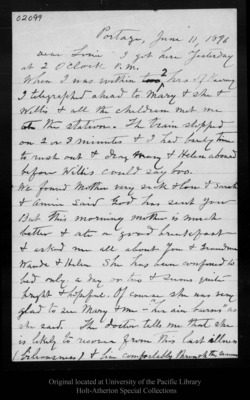 02099
Portage, June 11, 1896
Dear Louie I got here yesterday
at 2 O'Clock P.M.
When I was within 2 hrs of
I telegraphed ahead to Mary & she &
Willis & all the children met me
at the station. The train stopped
on 2 or 3 minutes & I had barely time
to rush out & drag Mary & Helen aboard
before Willis could say boo.
We found Mother very sick & Sarah
& Annie said God has sent you
But this morning mother is much
better & ate a good breakfast
& asked me all about you & Grandma
Wanda & Helen. She has been confined to
bed only a day or two & seems quite
bright & hopeful. Of course she was very
glad to see Mary & me – her
she said. The doctor tells me that she
is likely to recover from this last illness
(biliousness) & live comfortably through the summer
Original located at University of the Pacific Library
Holt-Atherton Special Collections